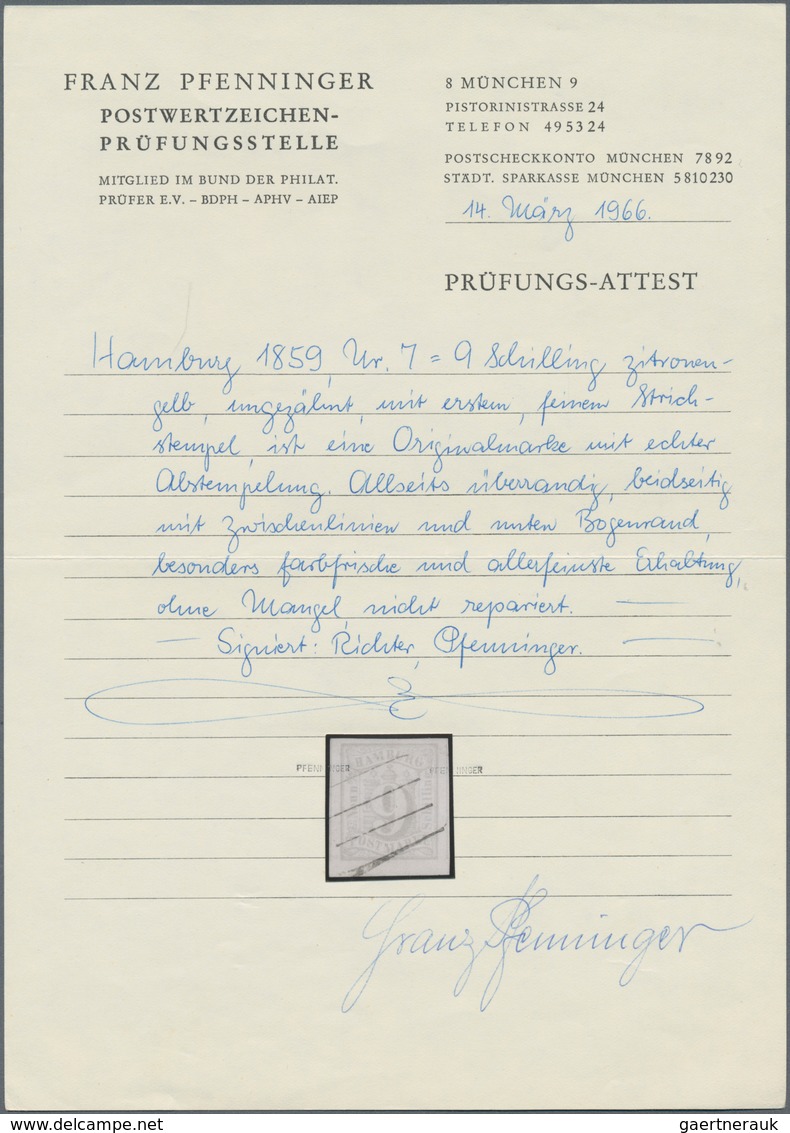 FRANZ PFENNINGER
POSTWERTZEICHEN-
PRÜFUNGSSTELLE
MITGLIED IM BUND DER PHILAT.
PRÜFER E.V. – BDPH – APHV – AIEP
8 MÜNCHEN 9
PISTORINISTRASSE 24
TELEFON 495324
POSTSCHECKKONTO MÜNCHEN 7892
STÄDT. SPARKASSE MÜNCHEN 5810230
14. März 1966.
PRÜFUNGS-ATTEST
Hamburg 1859, Nr. 7 = 9 Schilling zitronen-
gelb, ungezähnt, mit erstem, feinem Strich-
stempel, ist eine Originalmarke mit echter
Abstempelung. Allseits überrandig, beidseitig
mit Zwischenlinien und unten Bogenrand,
besonders farbfrische und allerfeinste Erhaltung,
ohne Mängel, nicht repariert. —
— Signiert: Richter, Pfenninger. —
PFENNINGER PFENNINGER
HAMBURG
9
POSTMARKE
Schilling
Franz Pfenninger
gaertnerauk